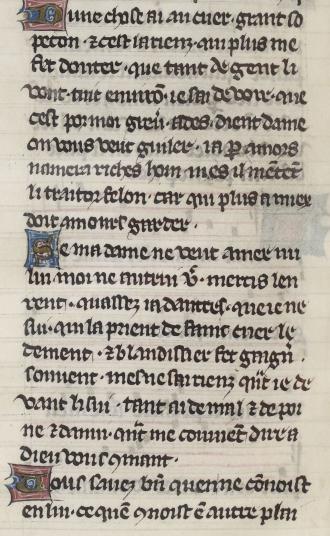 D une chose ai an cuer . grant so
pecon . ⁊ cest la riens . qui plus me
fet douter . que tant de gent li
vont . tuit enuirõ . ie sai de voir . que
cest por moi greuer . ades . dient dame
on vous veut guiler . ia ꝑ amors
namera riches hom . mes il mẽtẽt
li traitor felon . car qui plus a miex
doit amours garder .
Se ma dame ne veut amer nu
lui . moi ne autrui v̾ . mercis len
rent . quassez ia dautres . que ie ne
sui . qui la prient de faint cuer le
dement . ⁊ blandissier fet gaign̾
souuent . mes ne sai riens . qñt ie de
vant li sui . tant ai de mal ⁊ de poi
ne ⁊ danui . qñt me couuẽt dire a
dieu vous ꝯmant .
Vous sauez bñ quen ne cõnoist
en lui . ce quẽ ꝯnoist ẽ autre plai